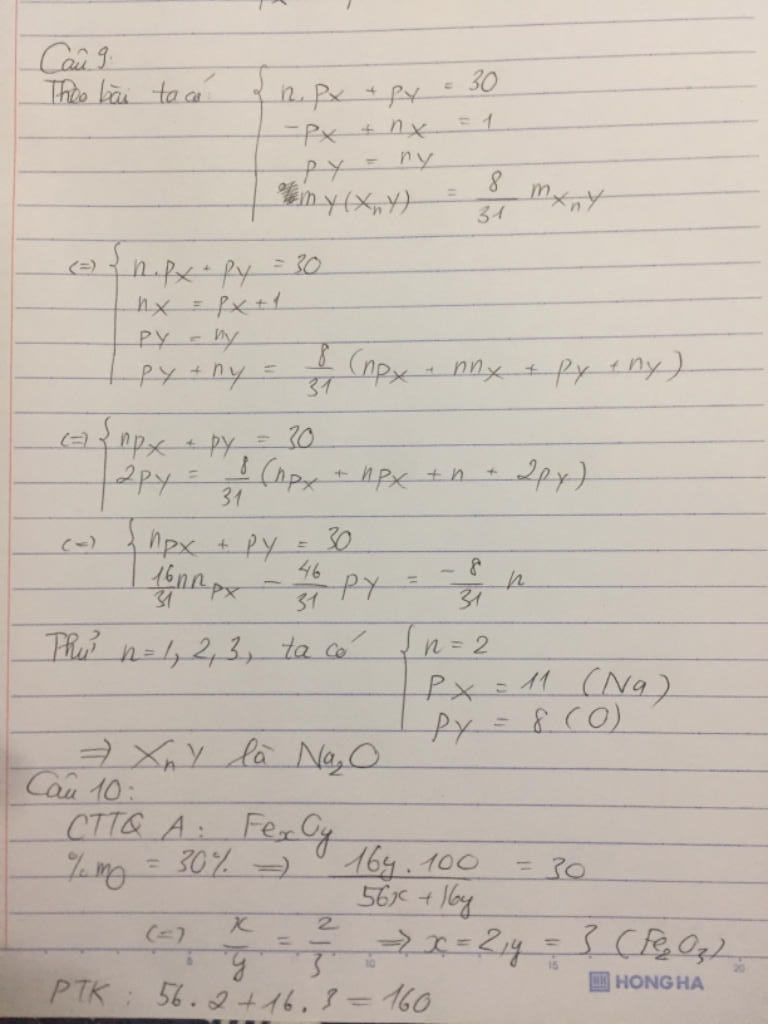 Câu 9:
Theo bài ta có { n.pX + pY = 30
-pX + nX = 1
pY = nY
mY(XnY) = 8/31 mXnY
<=> { n.pX + pY = 30
nX = pX + 1
pY = nY
pY + nY = 8/31 (npX + nnX + pY + nY)
<=> { npX + pY = 30
2pY = 8/31 (npX + npX + n + 2pY)
<=> { npX + pY = 30
16/31 nnpX - 46/31 pY = -8/31 n
Thử n=1, 2, 3, ta có { n = 2
pX = 11 (Na)
pY = 8 (O)
=> XnY là Na2O
Câu 10:
CTTQ A: FexOy
%mO = 30% => 16y.100/56x+16y = 30
<=> x/y = 2/3 => x=2, y = 3 (Fe2O3)
5 10 15 20
HONG HA
PTK: 56.2+16.3=160